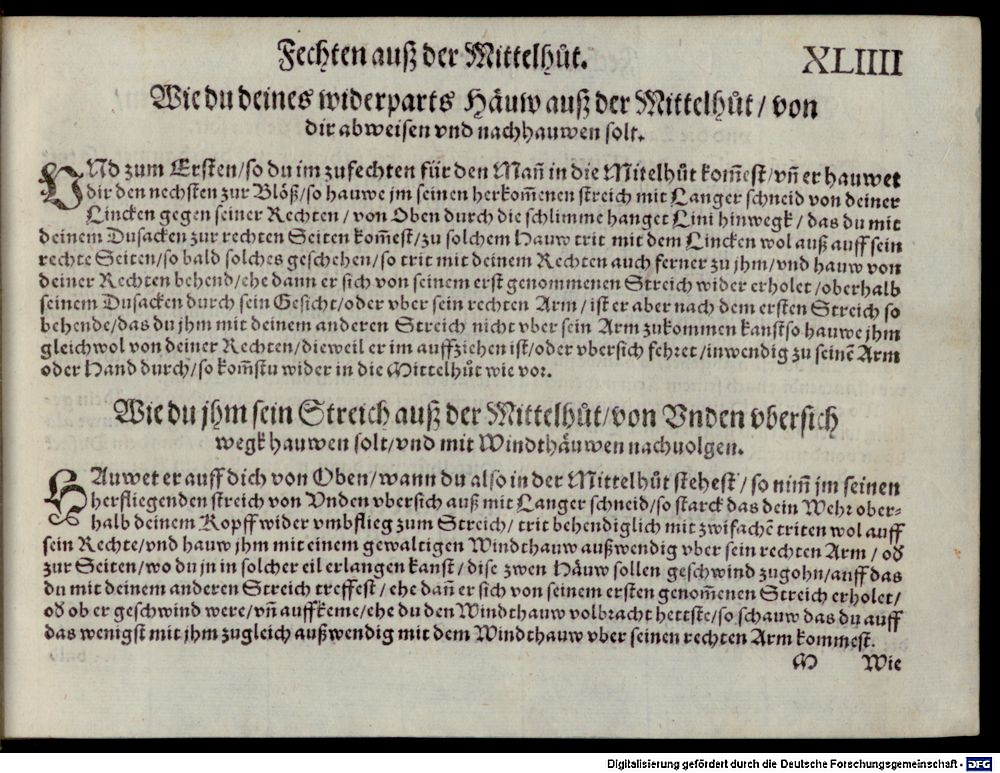 Fechten auß der Mittelhůt.
XLIIII
Wie du deines widerparts Häuw auß der Mittelhůt / von
dir abweisen vnd nachhauwen solt.
VNd zum Ersten / so du im zufechten für den Mañ in die Mitelhůt kom̃est / vñ er hauwet
dir den nechsten zur Blöß / so hauwe jm seinen herkom̃enen streich mit Langer schneid von deiner
Lincken gegen seiner Rechten / von Oben durch die schlimme hanget Lini hinwegk / das du mit
deinem Dusacken zur rechten Seiten kom̃est / zu solchem Hauw trit mit dem Lincken wol auß auff sein
rechte Seiten / so bald solches geschehen / so trit mit deinem Rechten auch ferner zu jhm / vnd hauw von
deiner Rechten behend / ehe dann er sich von seinem erst genommenen Streich wider erholet / oberhalb
seinem Dusacken durch sein Gesicht / oder vber sein rechten Arm / ist er aber nach dem ersten Streich so
behende / das du jhm mit deinem anderen Streich nicht vber sein Arm zukommen kanst so hauwe jhm
gleichwol von deiner Rechten / dieweil er im auffziehen ist / oder vbersich fehret / inwendig zu seinẽ Arm
oder Hand durch / so kom̃stu wider in die Mittelhůt wie vor.
Wie du jhm sein Streich auß der Mittelhůt / von Vnden vbersich
wegk hauwen solt / vnd mit Windthäuwen nachuolgen.
HAuwet er auff dich von Oben / wann du also in der Mittelhůt stehest / so nim̃ jm seinen
herfliegenden streich von Vnden vbersich auß mit Langer schneid / so starck das dein Wehr ober-
halb deinem Kopff wider vmbflieg zum Streich / trit behendiglich mit zwifachẽ triten wol auff
sein Rechte / vnd hauw jhm mit einem gewaltigen Windthauw außwendig vber sein rechten Arm / od̃
zur Seiten / wo du jn in solcher eil erlangen kanst / dise zwen Häuw sollen geschwind zugohn / auff das
du mit deinem anderen Streich treffest / ehe dañ er sich von seinem ersten genom̃enen Streich erholet /
od̃ ob er geschwind were / vñ auffkeme / ehe du den Windthauw volbracht hettste / so schauw das du auff
das wenigst mit jhm zugleich außwendig mit dem Windthauw vber seinen rechten Arm kommest.
M Wie
Digitalisierung gefördert durch die Deutsche Forschungsgemeinschaft - DFG